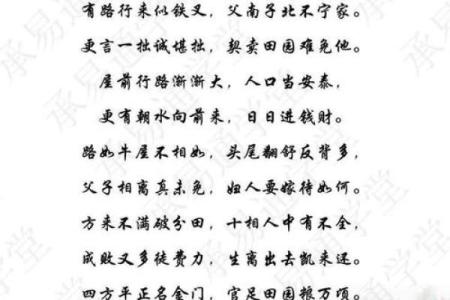 有路行来似铁叉，父南子北不宁家。
更言一拙诚堪拙，典卖田园难免他。
屋前行路渐渐大，人口当安泰，
更有朝水向前来，日日进钱财。
路如牛屋不相如，头尾翻舒反背多，
父子相离真未免，妇人要嫁待如何。
方来不满破分田，十相人中有不全，
成败又多徒费力，生离出去凯来还。
四方平正名金门，官足田园粮万项。
承易通学堂